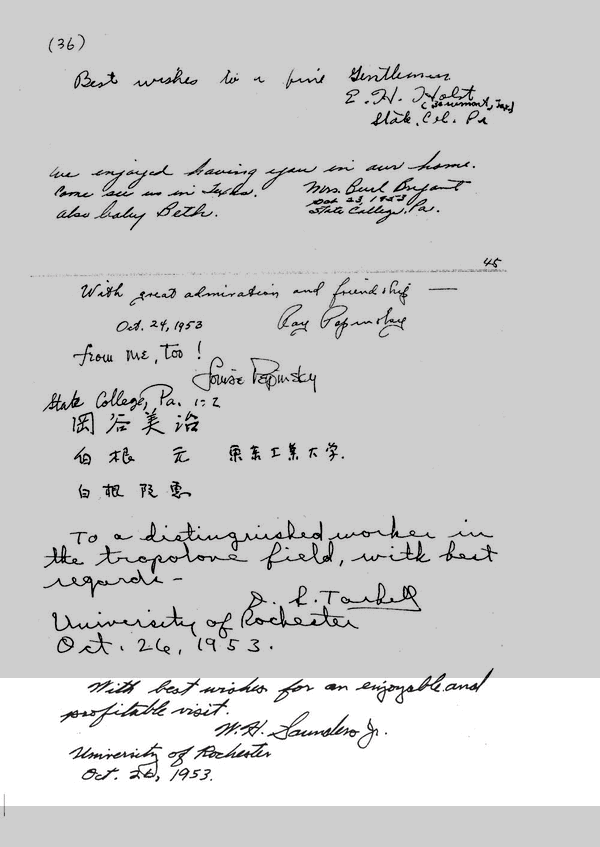 (36)
Best wishes to a fine Gentleman
E. H. Holst
(Beaumont, Tex)
State Col. Pa
We enjoyed having you in our home.
Come see us in Texas. Mrs. Burl Bryant
Oct 23, 1953
also baby Beth. State College, Pa.
45
With great admiration and friendship —
Oct. 24, 1953 Ray Pepinsky
from me, too!
Louise Pepinsky
State College, Pa.
岡谷美治
白根 元 東京工業大学.
白根
To a distinguished worker in
the tropolone field, with best
regards –
D. S. Tarbell
University of Rochester
Oct. 26, 1953.
With best wishes for an enjoyable and
profitable visit.
W. H. Saunders Jr.
University of Rochester
Oct. 26, 1953.